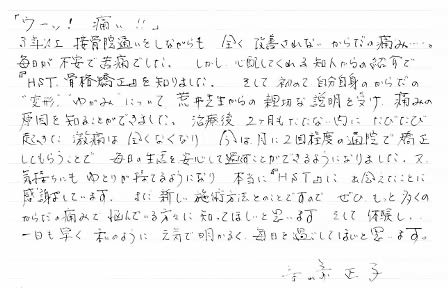 「ウーッ! 痛い!!」
3年以上 接骨院通いをしながらも 全く改善されないからだの痛み…。
毎日が不安で苦痛でした。しかし心配してくれる知人からの紹介で
『HST.骨格矯正』を知りました。そして初めて自分自身のからだの
"変形""ゆがみ"について 荒井先生からの親切な説明を受け、痛みの
原因を知ることができました。治療後 2ヶ月もたたない内に たびたび
起きた激痛は全くなくなり 今は月に2回程度の通院で矯正
してもらうことで 毎日の生活を安心して過すことができるようになりました。又、
気持ちにもゆとりが持てるようになり 本当に『HST』に出会えたことに
感謝しています。まだ新しい施術方法とのことですので ぜひもっと多くの
からだの痛みで悩んでいる方々に知ってほしいと思います そして体験し、
一日も早く 私のように 元気で明かるく毎日を過ごしてほしいと思います。
正子